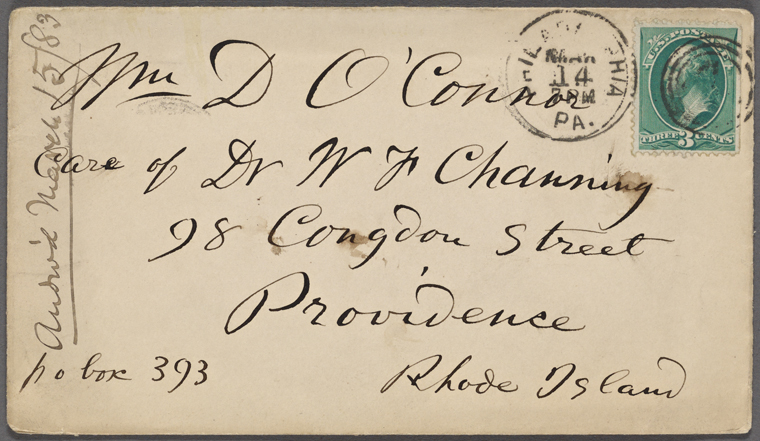 Wm D O'Connor
Care of Dr W F Channing
98 Congdon Street
Providence
Rhode Island
p o box 393
Answ'd March 15/83
PHILADELPHIA
MAR
14
PM
PA.
U.S. POSTAGE
THREE 3 CENTS